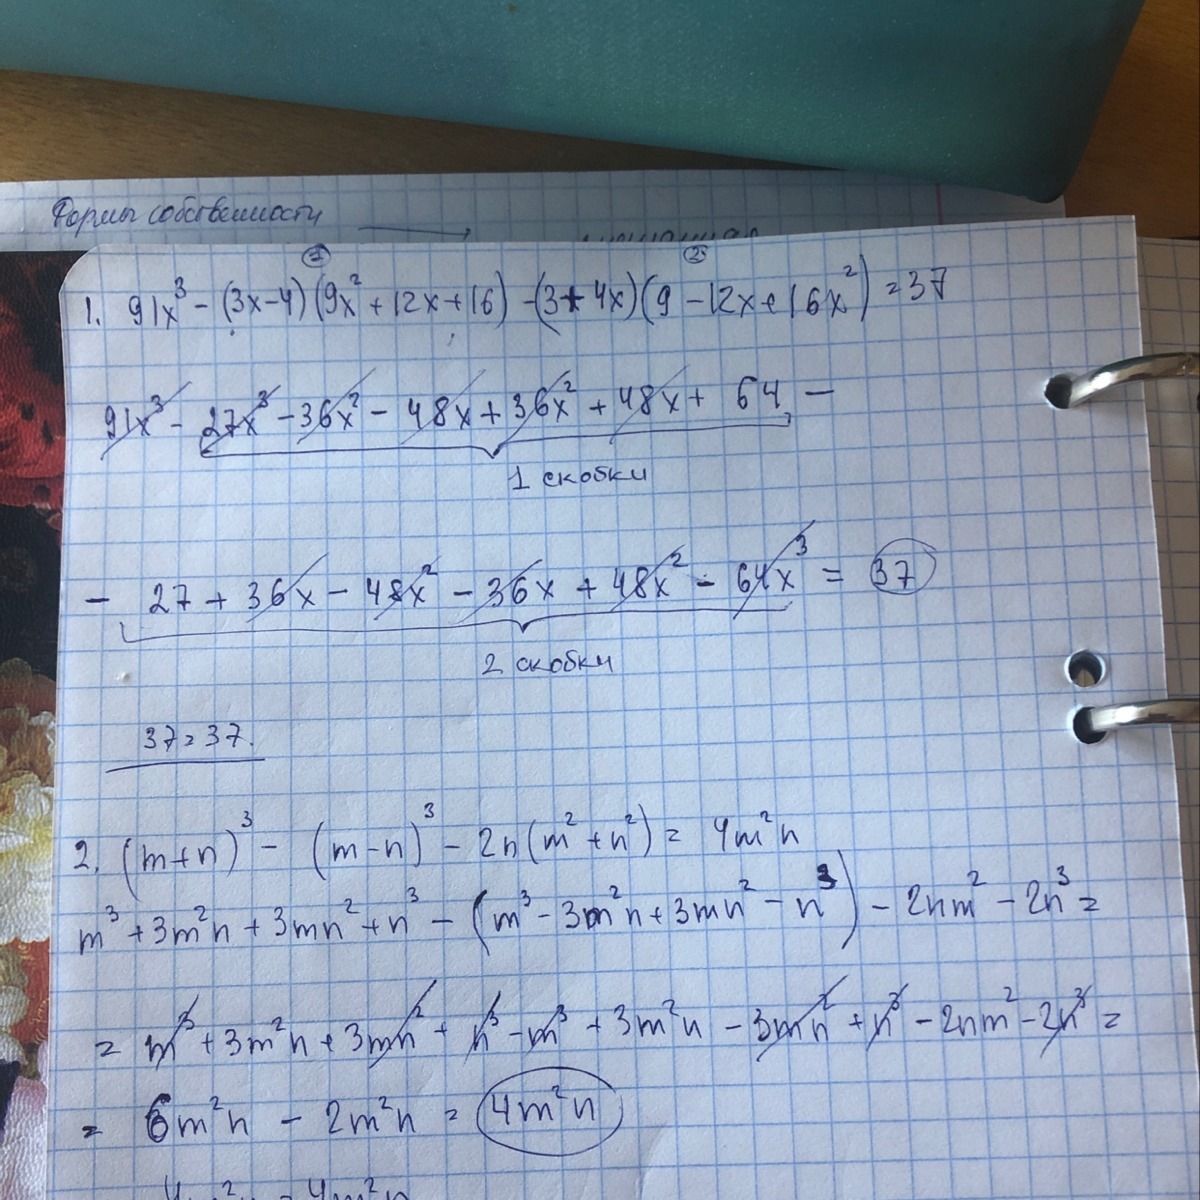 Формы собственности
1 2
1. 91x³ - (3x-4)(9x² + 12x + 16) - (3+4x)(9 - 12x + 16x²) = 37
91x³ - 27x³ - 36x² - 48x + 36x² + 48x + 64 -
1 скобки
- 27 + 36x - 48x² - 36x + 48x² - 64x³ = 37
2 скобки
37 = 37.
2. (m+n)³ - (m-n)³ - 2n(m² + n²) = 4m²n
m³ + 3m²n + 3mn² + n³ - (m³ - 3m²n + 3mn² - n³) - 2nm² - 2n³ =
= m³ + 3m²n + 3mn² + n³ - m³ + 3m²n - 3mn² + n³ - 2nm² - 2n³ =
= 6m²n - 2m²n = 4m²n
4m²n = 4m²n